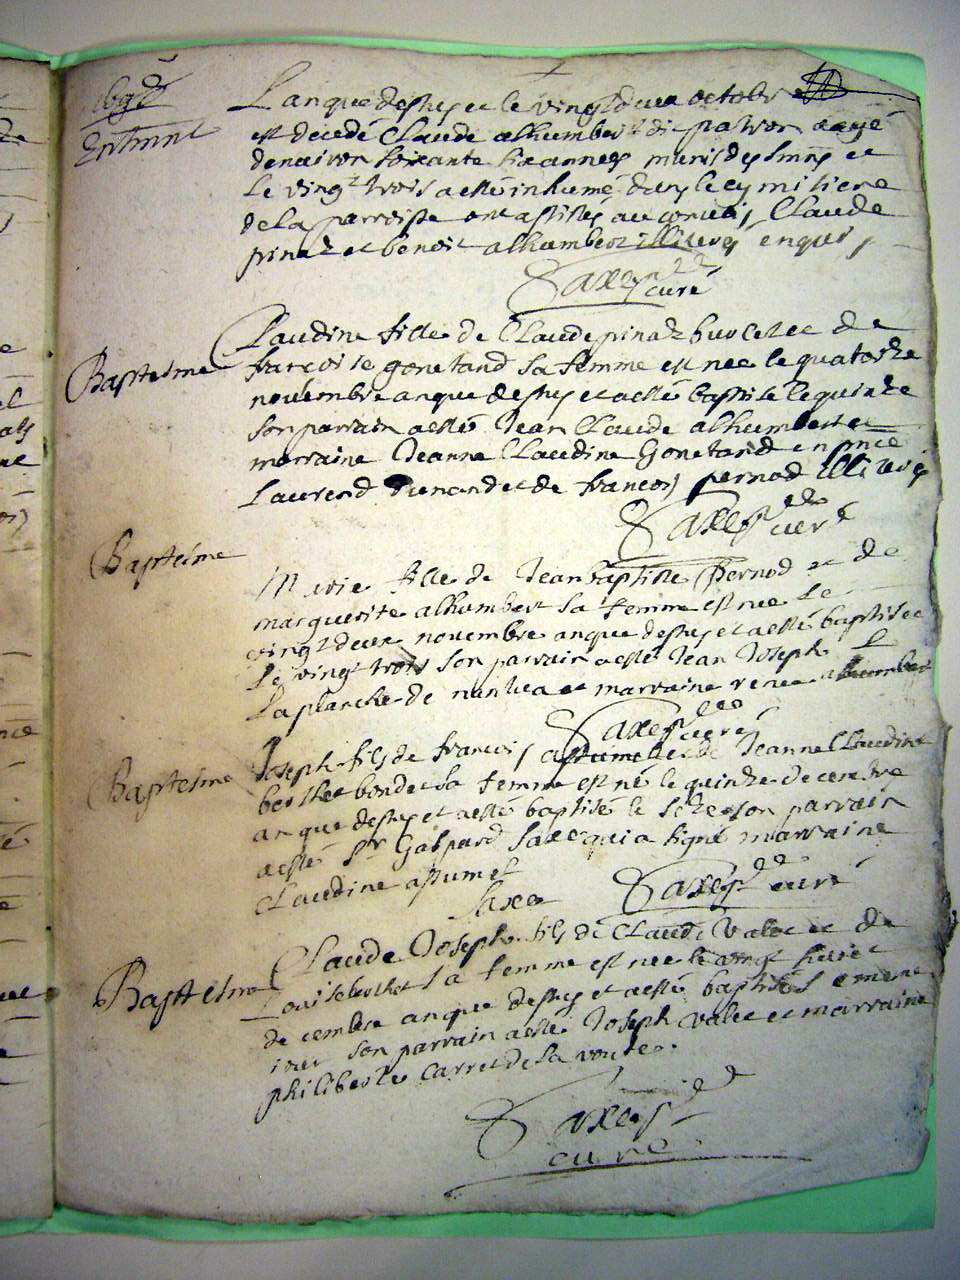 Enterrmt
L'an que dessus et le vingt deux octobre
est decedé Claude alhumbert dit patron aagé
denviron soixante six années munis des smns et
le vingt trois a esté inhumé dans le cymitiere
de la parroisse ont assistés au convois Claude
pinard et benoit alhumbert illiterés enquis
Saxe pr
curé
Baptesme
Claudine fille de Claude pinard et de
francoise gonetand sa femme est nee le quatorze
novembre an que dessus et a esté baptisée le quinze
son parrain a esté Jean Claude alhumbert et
marraine Jeanne Claudine Gonetand en pnce
Laurend et de francois pernod illiterés
Saxe pr curé
Baptesme
Marie fille de Jean baptiste Pernod et de
marguerite alhumbert sa femme est nee le
vingt deux novembre an que dessus et a esté baptisee
le vingt trois son parrain a esté Jean Joseph
Laplanche de nantua et marraine renee alhumbert
Saxe pr curé
Baptesme
Joseph fils de francois assumet et de Jeanne Claudine
berthet bondet sa femme est né le quinze decembre
an que dessus et a esté baptisé le seize son parrain
a esté Sr Gaspard Saxe qui a signé marraine
Claudine assumet
Saxe
Saxe pr curé
Baptesme
Claude Joseph fils de Claude Valet et de
Louise berthet sa femme est nee le vingt huict
decembre an que dessus et a esté baptisé le meme
iour son parrain a esté Joseph Valet et marraine
philiberte Carret de la voute.
Saxe pr
curé